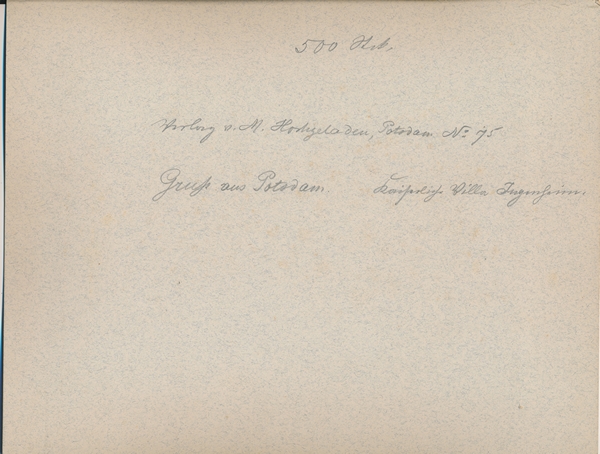 500 Stck.
Verlag v. M. Hochgeladen, Potsdam No 75
Gruß aus Potsdam. Kaiserliche Villa Ingenheim.